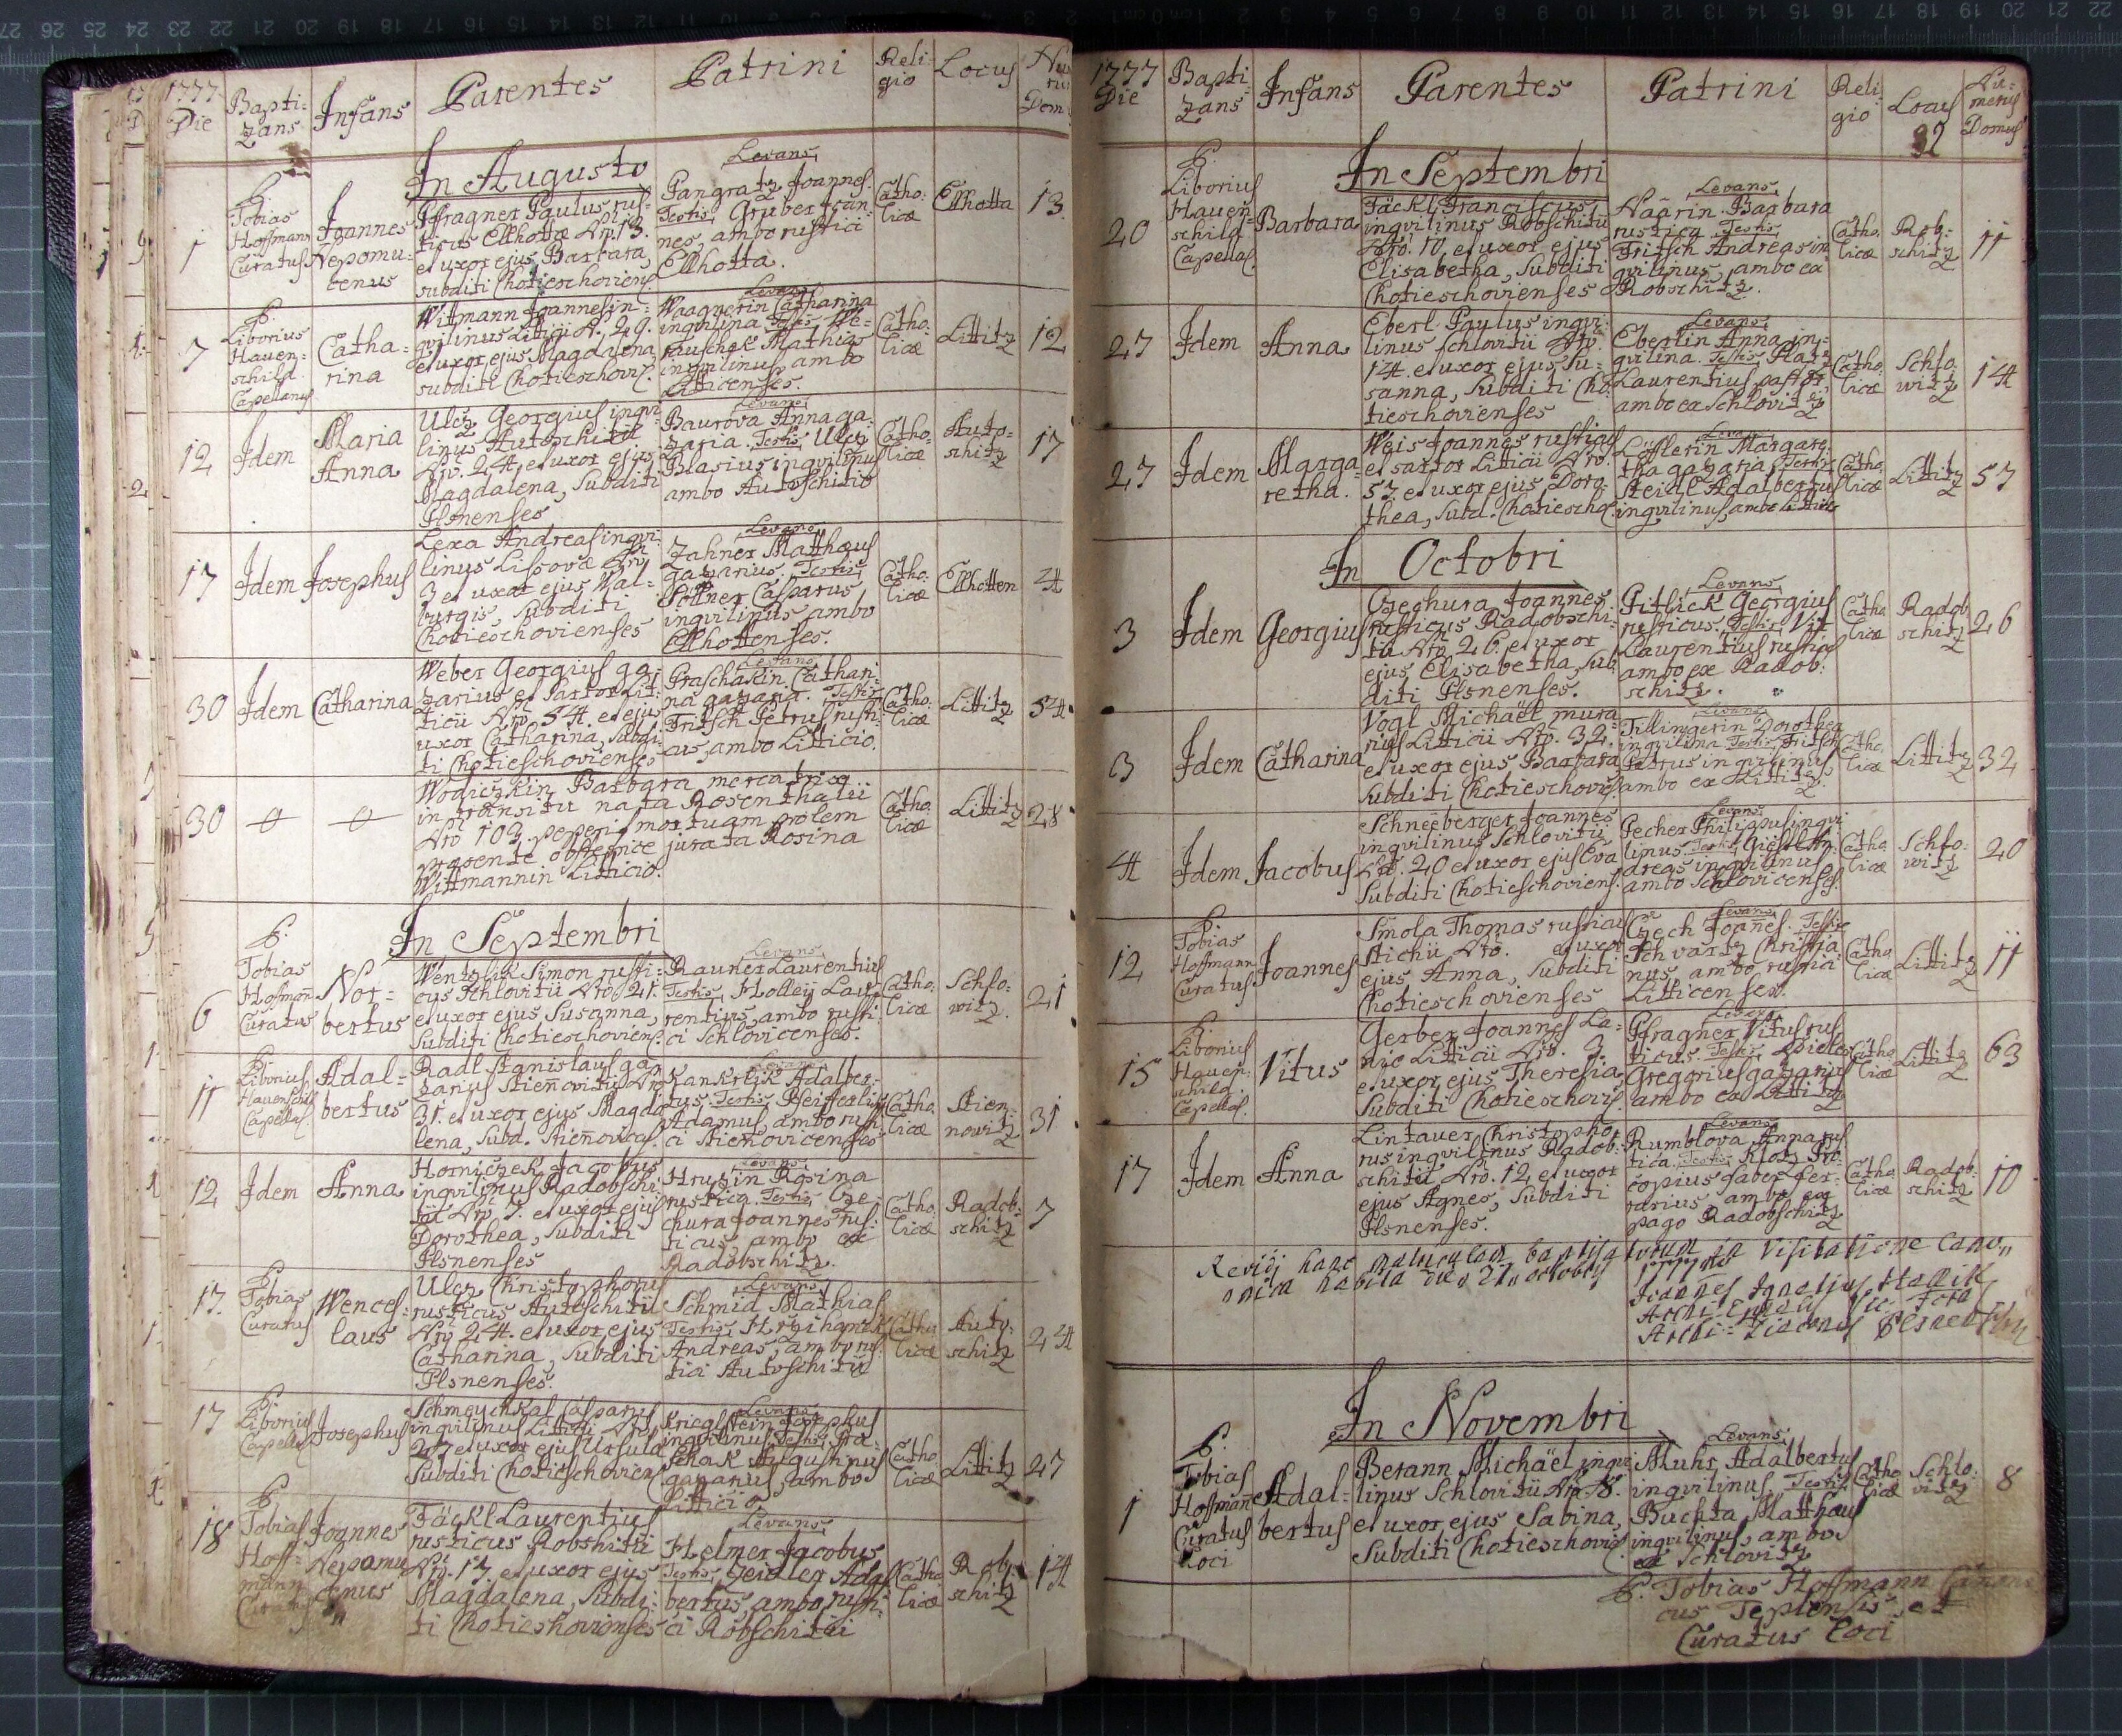 1777
Die
Bapti-
zans
Infans
Parentes
Patrini
Reli-
gio
Locus
In Augusto
1
P.
Tobias
Hoffmann
Curatus
Joannes
Nepomu-
cenus
Pfragner Paulus rus-
ticus Ellhottæ Nro. 13.
et uxor ejus Barbara,
subditi Chotieschoviens.
Levans,
Pangratz Joannes.
Testis, Gruber Joan-
nes, ambo rustici
Ellhotta.
Catho:
licæ
Ellhotta
13.
7
P.
Liborius
Hauen-
schild
Capellanus
Catha-
rina
Witmann Joannes in-
qvilinus Litticii N. 29.
et uxor ejus Magdalena
subditi Chotieschovi
Levans
Waagnerin Catharina
inqvilina Testis, We-
rauschek Mathias
inqvilinus, ambo
Litticenses.
Catho:
licæ
Littitz
12
12
Idem
Maria
Anna
Ulcz Georgius inqvi-
linus Autoschitii
Nro. 24, et uxor ejus
Magdalena, Subditi
Plsnenses
Levans
Baurova Anna ga-
zaria. Testis, Ulcz
Blasius inqvilinus
ambo Autoschitio
Catho:
licæ
Auto-
schitz
17
17
Idem
Josephus
Lexa Andreas inqvi-
linus Lissovæ Nro
3 et uxor ejus Wal-
burgis, Subditi
Chotieschovienses
Levans
Zahner Matthæus
gazarius, Testis,
Söllner Casparus
inqvilinus, ambo
Ellhottenses.
Catho:
licæ
Ellhotten
4
30
Idem
Catharina
Weber Georgius ga-
zarius et sartor Lit-
ticii Nro. 54. et ejus
uxor Catharina, Subdi-
ti Chotieschovienses
Levans
Praschakin Cathari-
na gazaria. Testis
Fritsch Petrus rusti-
cus, ambo Litticio.
Catho:
licæ
Littitz
54.
30
Wodiczkin Barbara mercatrix
in transitu nata Rosenthalii
Nro 103. peperit mortuam prolem
præsente obstetrice jurata Rosina
Wittmannin Litticio.
Catho:
licæ
Littitz
28
In Septembri
6
P.
Tobias
Hoffmañ
Curatus
Nor-
bertus
Wentzlik Simon rusti-
cus Schlovitii Nro 21.
et uxor ejus Susanna,
Subditi Chotieschoviens.
Levans,
Rauner Laurentius
Testis, Holley Lau-
rentius, ambo rusti-
ci Schlovicenses.
Catho:
licæ
Schlo-
witz.
21
11
P.
Liborius
Hauenschild
Capells.
Adal-
bertus
Radl Stanislaus ga-
zarius Stieñovitii Nro
31. et uxor ejus Magda-
lena, Subd. Stieñovicens.
Levans
Kankrlik Adalber-
tus, Testis, Pfeifferlik
Adamus, ambo rusti-
ci Stieñovicenses
Catho:
licæ
Stien-
nowitz
31
12
Idem
Anna
Horniczek Jacobus
inqvilinus Radobschi-
tii Nro 7. et uxor ejus
Dorothea, Subditi
Plsnenses
Levans,
Hruzin Rosina
rustica. Testis Cze-
chura Joannes rus-
ticus, ambo ex
Radobschitz.
Catho:
licæ
Radob-
schitz
7
17.
P.
Tobias
Curatus
Wences-
laus
Ulcz Christophorus
rusticus Autoschitii
Nro 24. et uxor ejus
Catharina, Subditi
Plsnenses.
Levans,
Schmid Mathias
Andreas, ambo rus-
tici Autoschitii
Catho:
licæ
Auto-
schitz
24
17
P.
Liborius
Capells
Josephus
inqvilinus Litticii Nro
27 et uxor ejus Ursula
Subditi Chotieschoviens
Levans
Krieglstein Josephus
inqvilinus, Testis, Pra-
schak Augustinus
gazarius, ambo
Litticio.
Catho:
licæ
Littitz
27
18
P.
Tobias
Hoff-
mann
Curatus
Joannes
Nepomu-
cenus
Fäckl Laurentius
rusticus Robshitii
Nro. 17. et uxor ejus
Magdalena, Subdi-
ti Chotieshovienses
Levans,
Helmer Jacobus
Testis, Zeidler Adal-
bertus, ambo rusti-
ci Robschitii
Catho:
licæ
Rob-
schitz
14
1777
Die
Bapti-
zans
Infans
Parentes
Patrini
Reli-
gio
Locus
32
Nu-
merus
Domus
In Septembri
20
P.
Liborius
Haueñ
schild
Capellas.
Barbara
Fäckl Franciscus
inqvilinus Robschitii
Nro. 10, et uxor ejus
Elisabetha, Subditi
Chotieschovienses
Levans,
Naärin Barbara
rustica, Testis,
Fritsch Andreas in-
qvilinus, ambo ex
Robschitz.
Catho:
licæ
Rob-
schitz
11
27
Idem
Anna
Eberl Paulus inqvi-
linus Schlovitii Nro.
14. et uxor ejus Su-
sanna, Subditi Cho-
tieschovienses
Levans,
Eberlin Anna in-
qvilina. Testis, Platz
Laurentius pastor,
ambo ex Schlovitz
Catho:
licæ
Schlo-
witz
14
27
Idem
Marga
retha.
Weis Joannes rusticus
et sartor Litticii Nro.
57. et uxor ejus Doro-
thea, Subd. Chotiescho.
Levans
Löfflerin Margare-
tha gazaria, Testis,
Steidl Adalbertus
inqvilinus, ambo Litticii
Catho:
licæ
Littitz
57
In Octobri
3
Idem
Georgius
Czechura Joannes
rusticus Radobschi-
tii Nro 26. et uxor
ejus Elisabetha, Sub-
diti Plsnenses.
Levans,
Pitlick Georgius
rusticus. Testis, Vit
Laurentius rusticus
ambo ex Radob-
schitz.
Catho:
licæ
Radob
schitz
26
3
Idem
Catharina
Vogl Michaël mura-
rius Litticii Nro. 32.
et uxor ejus Barbara
Subditi Chotieschovies
Levans
Tillingerin Dorothea
inqvilina Testis, Fritsch
Petrus inqvilinus
ambo ex Littitz.
Catho:
licæ
Littitz
32
4
Idem
Jacobus
Schneëberger Joannes
inqvilinus Schlovitii
Nro. 20 et uxor ejus Eva
Subditi Chotieschoviens.
Levans
Pecher Philippus inqvi-
linus. Testis, Giebl An-
dreas inqvilinus
ambo Schlovicenses.
Catho:
licæ
Schlo-
witz
20
12
P.
Tobias
Hoffmann
Curatus
Joannes
Smola Thomas rusticus
Stichii Nro. et uxor
ejus Anna, Subditi
Chotieschovienses
Levans,
Czech Joañes. Testis
Schvartz Christia-
nus, ambo rustici
Litticenses.
Catho:
licæ
Littitz
11
15
P.
Liborius
Hauen-
schild
Capells.
Vitus
Gerber Joannes La-
nio Litticii Nro. 3.
et uxor ejus Theresia
Subditi Chotieschovis.
Levans
Pfragner Vitus rus-
ticus. Testis,
Gregorius gazarius
ambo ex Littitz
Catho:
licæ
Littitz
63
17
Idem
Anna
Lintauer Christopho-
rus inqvilinus Radob-
schitii, Nro. 12, et uxor
ejus Agnes, Subditi
Plsnenses.
Levans
Rumblova Anna rus-
tica. Testis, Klotz Pro-
copius faber fer-
rarius, ambo ex
pago Radobschitz
Catho:
licæ
Radob-
schitz
10
Revidi hanc matriculam baptisatorum in Visitatione Cano-
nica habita die 27 octobris 1777
Joannes Ignatius
In Novembri
1
P.
Tobias
Hoffmañ
Curatus
Loci
Adal-
bertus
Berann Michaël inqvi-
linus Schlovitii Nro. 8.
et uxor ejus Sabina,
Subditi Chotieschovis.
Levans,
Muhr Adalbertus
inqvilinus, Testis,
Buchta Matthæus
inqvilinus, ambo
ex Schlovitz
Catho:
licæ
Schlo-
vitz
8
P. Tobias Hoffmann Canoni
cus Teplensis et
Curatus Loci